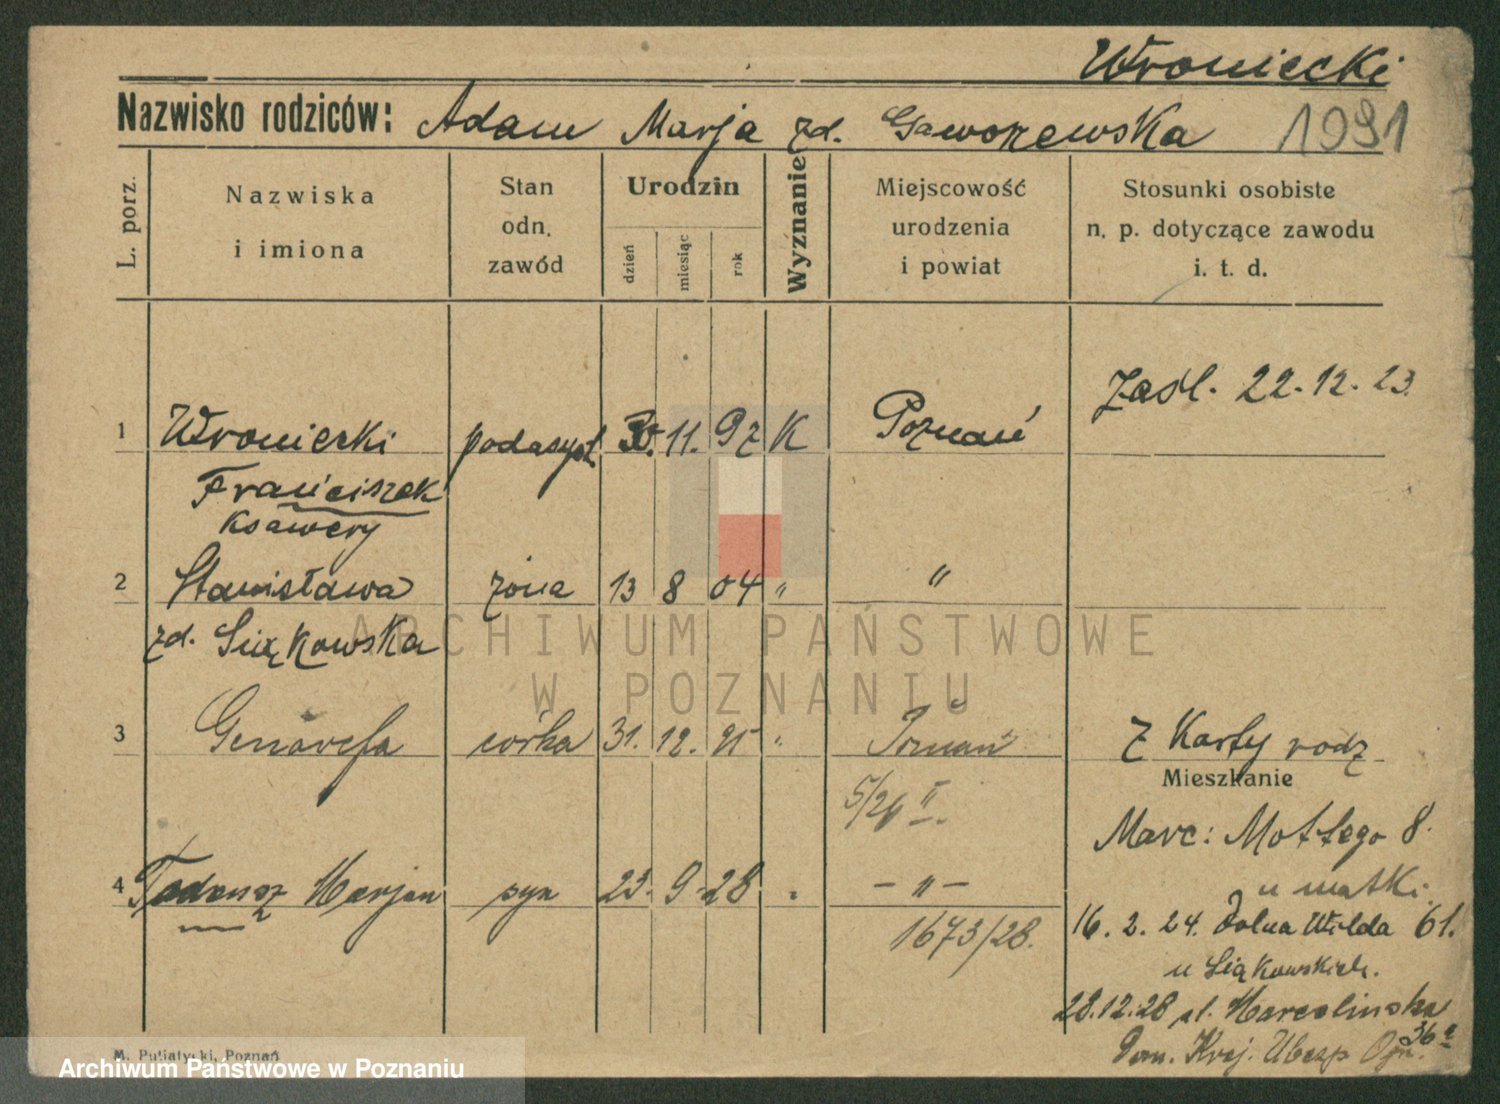 Wroniecki
Nazwisko rodziców: Adam Marja zd. Gaworzewska 1991
L. porz.
Nazwiska
i imiona
Stan
odn.
zawód
Urodzin
dzień
miesiąc
rok
Wyznanie
Miejscowość
urodzenia
i powiat
Stosunki osobiste
n. p. dotyczące zawodu
i. t. d.
Zaśl. 22.12.23.
1 Wroniecki podasyst. 30. 11. 97 K Poznań
Franciszek
Ksawery
2 Stanisława żona 13 8 04 " "
zd. Siąkowska
ARCHIWUM PAŃSTWOWE
W POZNANIU
3 Genowefa córka 31. 12. 25 " Poznań Z Karty rodz
5/26 II.
Mieszkanie
Marc: Mottego 8.
u matki.
4 Tadeusz Marjan syn 23. 9. 28 " - " -
1673/28.
16. 2. 24. Dolna Wilda 61.
u Siąkowskich.
28.12.28 ul. Marcelinska
36a
Pozn. Kraj. Ubezp Ogn.
M. Putiatycki, Poznań
Archiwum Państwowe w Poznaniu